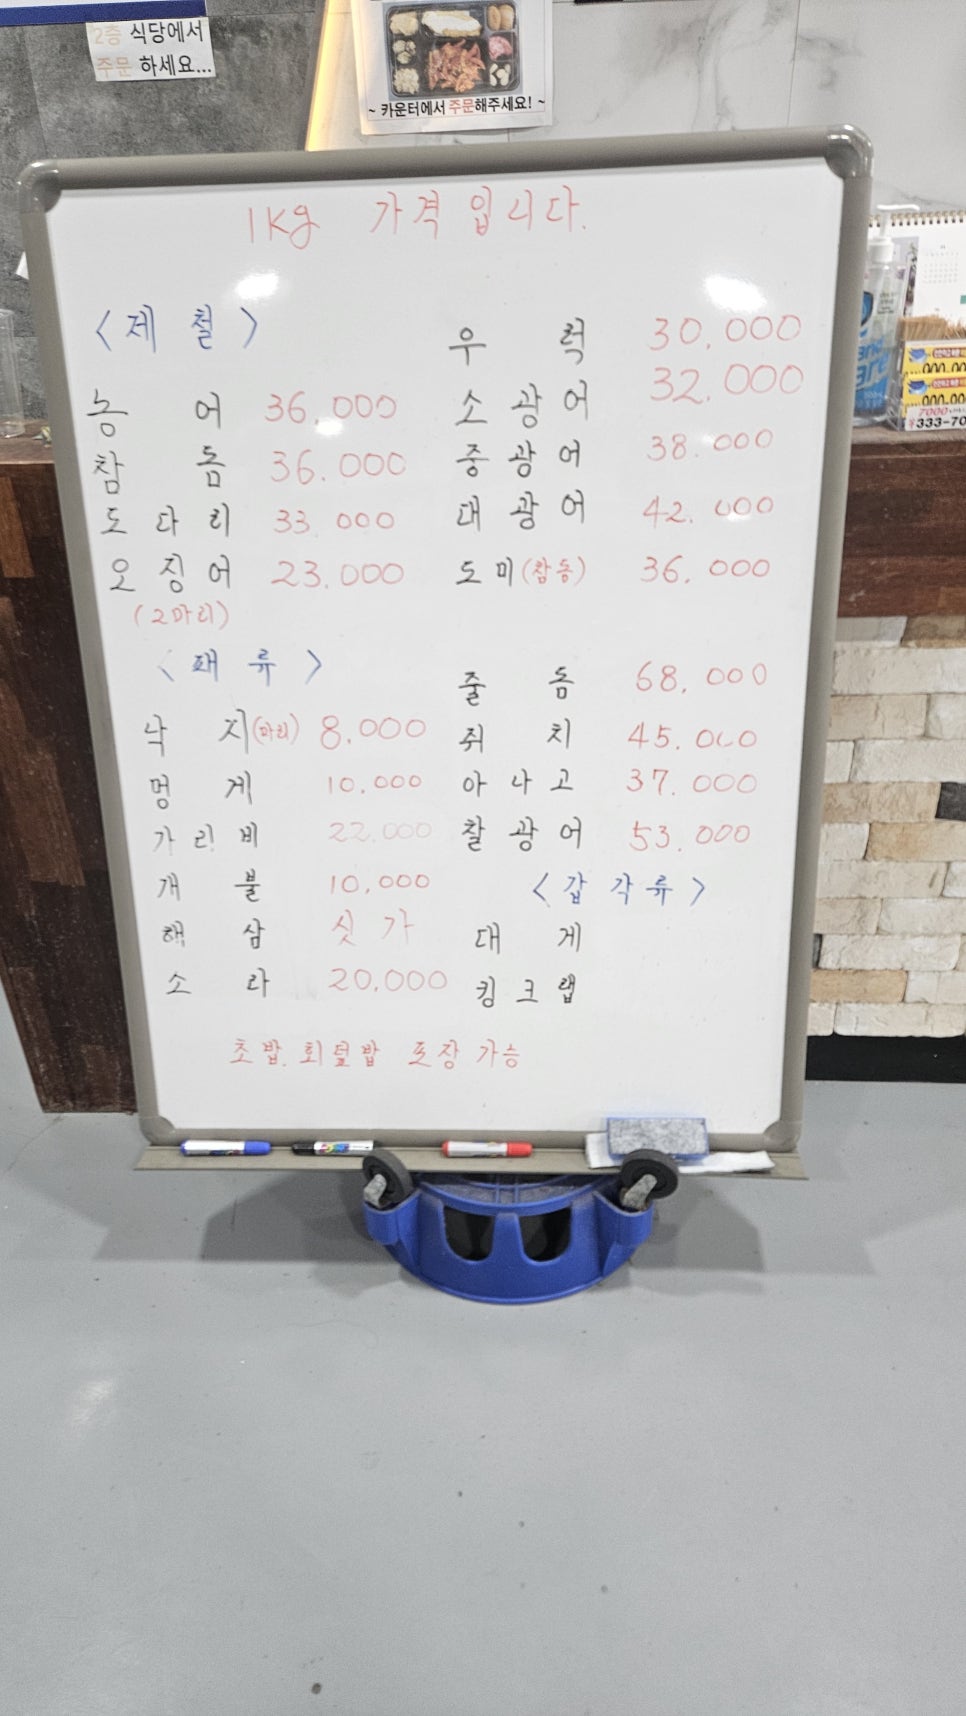 2층 식당에서
주문 하세요...
~ 카운터에서 주문해주세요! ~
1Kg 가격 입니다.
<제 철>
농 어 36.000
참 돔 36.000
도 다 리 33.000
오 징 어 23.000
(2마리)
<패 류>
낙 지(마리) 8.000
멍 게 10.000
가 리 비 22.000
개 불 10,000
해 삼 싯 가
소 라 20,000
우 럭 30,000
소 광 어 32.000
중 광 어 38.000
대 광 어 42.000
도 미(참돔) 36.000
줄 돔 68.000
쥐 치 45.000
아 나 고 37.000
찰 광 어 53.000
<갑 각 류>
대 게
킹 크 랩
초밥. 회덮밥 포장 가능
000-00
7000
333-70